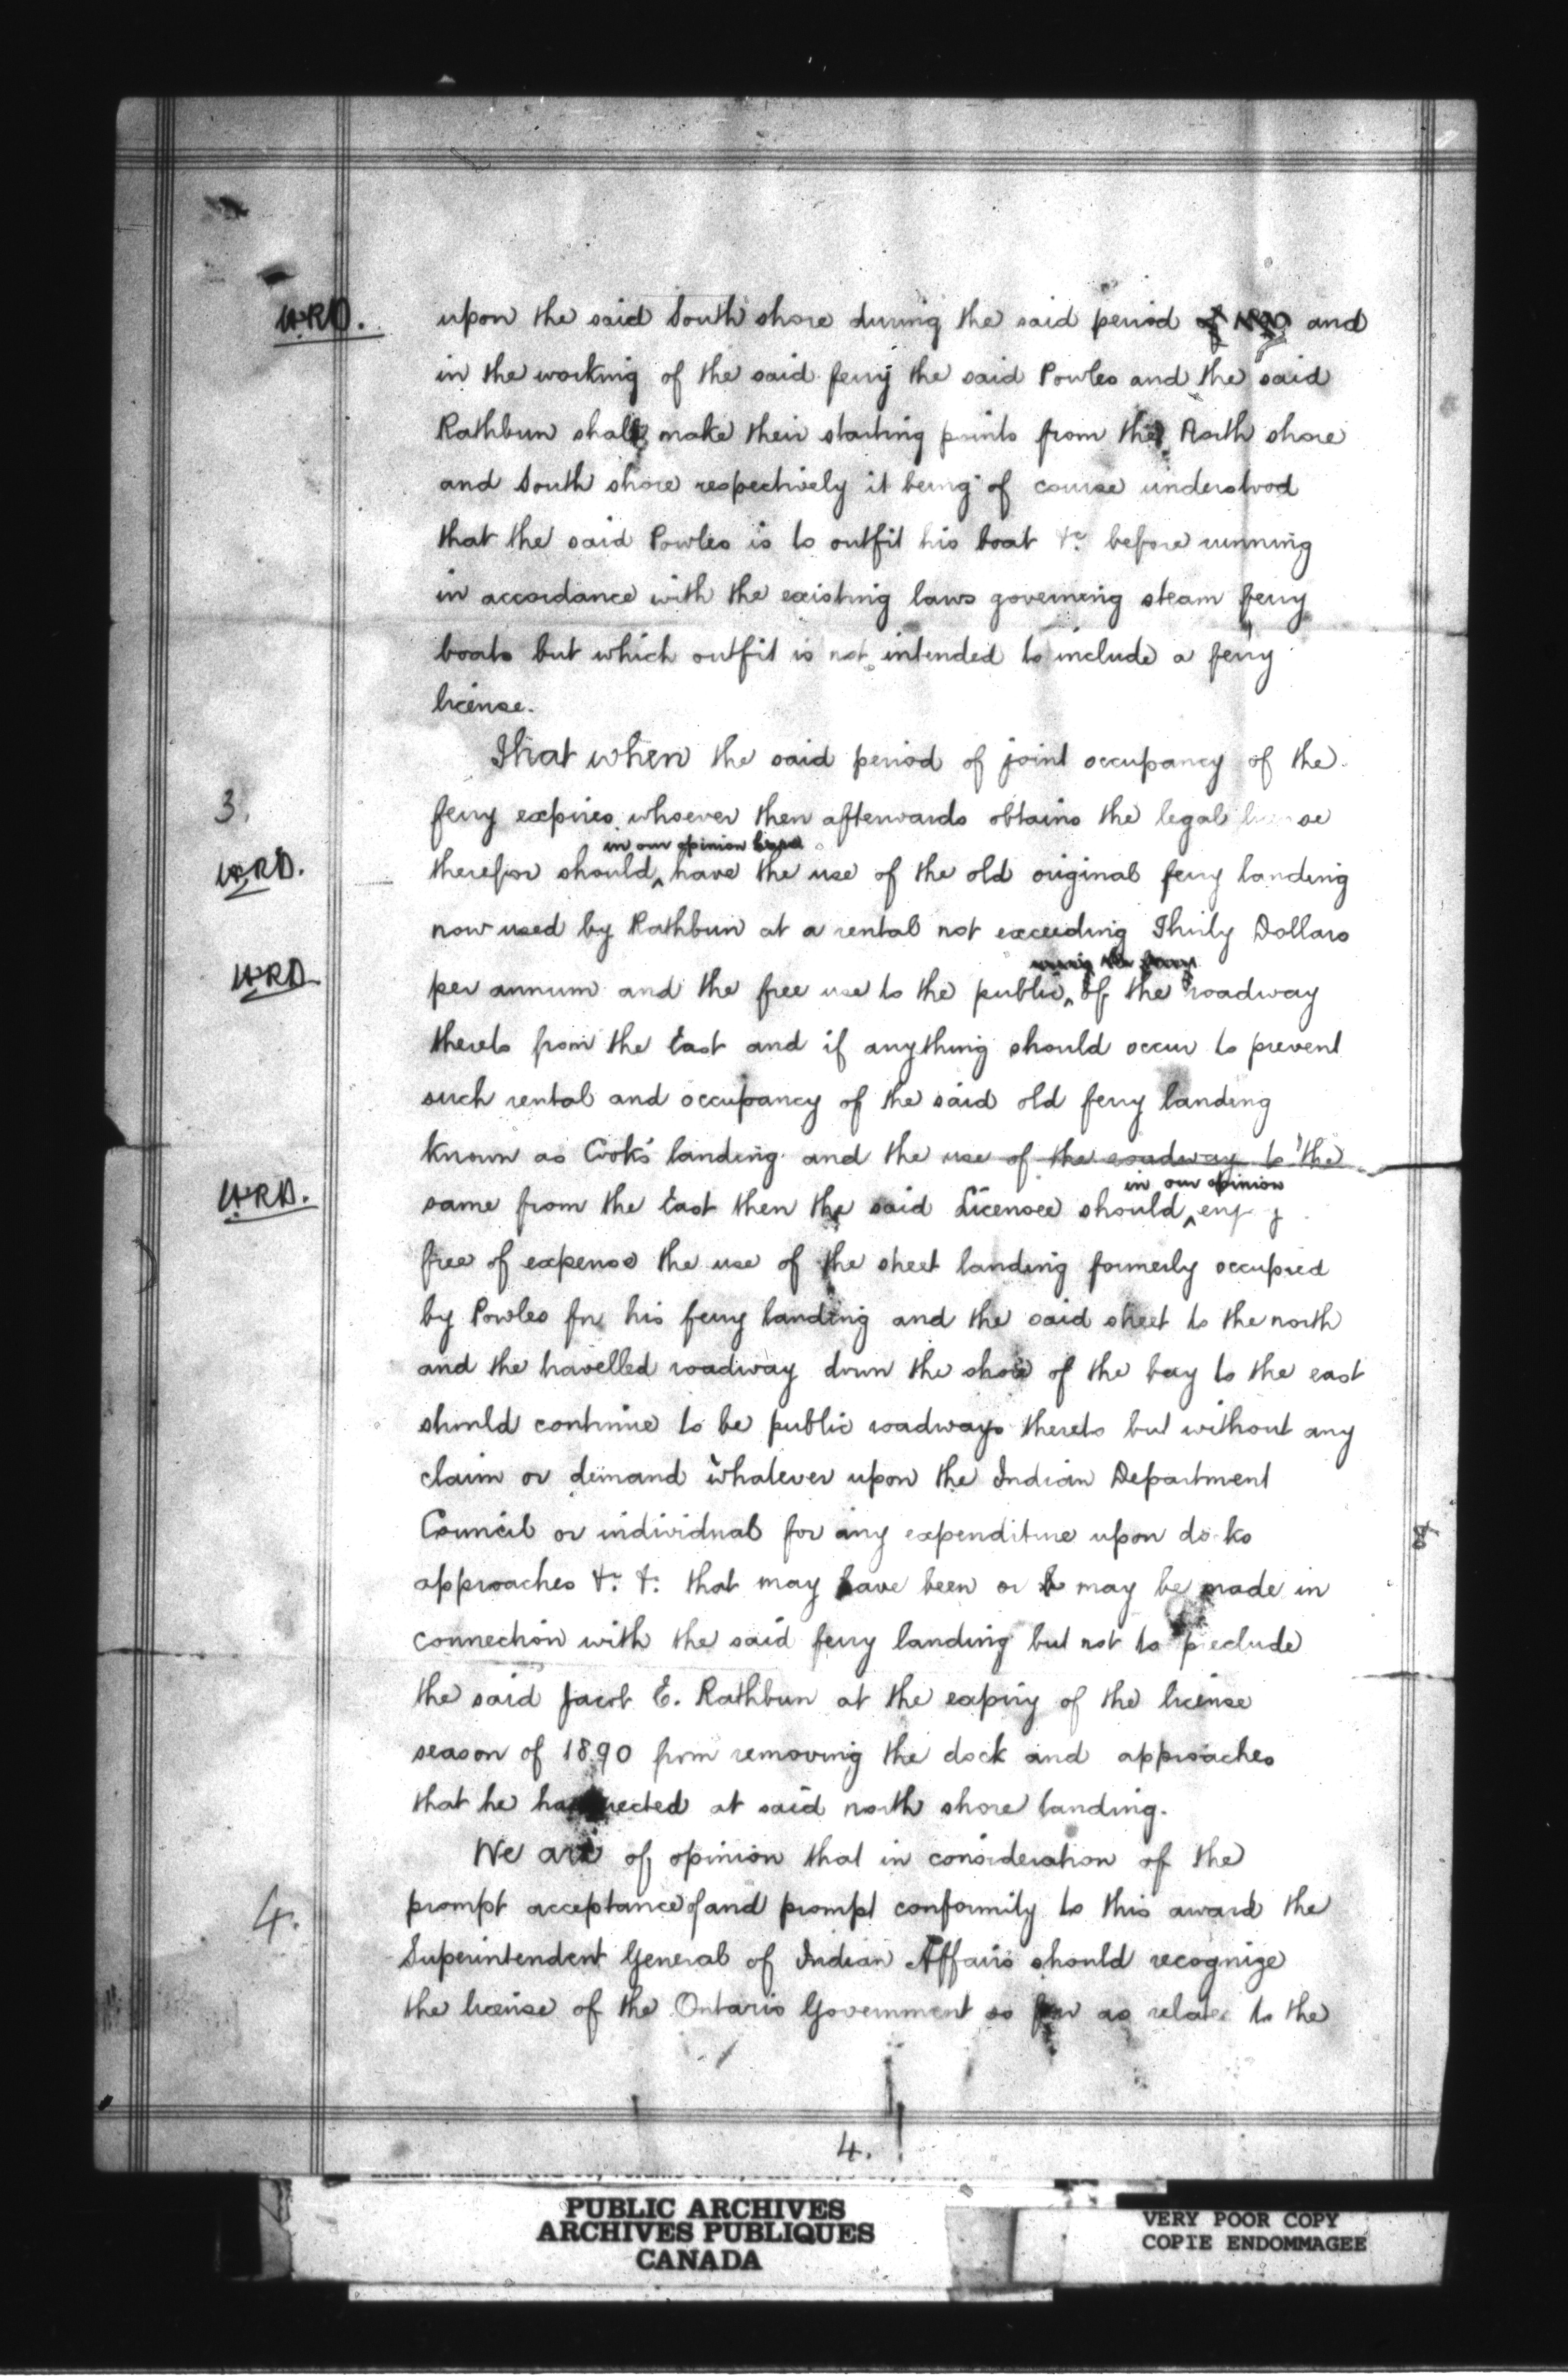 W.R.D.
upon the said South shore during the said period of 1890 and
in the working of the said ferry the said Powles and the said
Rathbun shall make their starting points from the North shore
and South shore respectively it being of course understood
that the said Powles is to outfit his boat &c before running
in accordance with the existing laws governing steam ferry
boats but which outfit is not intended to include a ferry
license.
That when the said period of joint occupancy of the
3.
ferry expires whoever then afterwards obtains the legal license
in our opinion
W.R.D.
therefor should have the use of the old original ferry landing
now used by Rathbun at a rental not exceeding Thirty Dollars
W.R.D.
per annum and the free use to the public of the roadway
thereto from the East and if anything should occur to prevent
such rental and occupancy of the said old ferry landing
known as Cook's landing and the use of the roadway to the
in our opinion
W.R.D.
same from the East then the said Licensee should enjoy
free of expense the use of the street landing formerly occupied
by Powles for his ferry landing and the said street to the north
and the travelled roadway down the shore of the bay to the east
should continue to be public roadways thereto but without any
claim or demand whatever upon the Indian Department
Council or individual for any expenditure upon docks
approaches &c. &c. that may have been or may be made in
connection with the said ferry landing but not to preclude
the said Jacob E. Rathbun at the expiry of the license
season of 1890 from removing the dock and approaches
that he has erected at said north shore landing.
We are of opinion that in consideration of the
4.
prompt acceptance of and prompt conformity to this award the
Superintendent General of Indian Affairs should recognize
the license of the Ontario Government so far as relates to the
4.
PUBLIC ARCHIVES
ARCHIVES PUBLIQUES
CANADA
VERY POOR COPY
COPIE ENDOMMAGEE